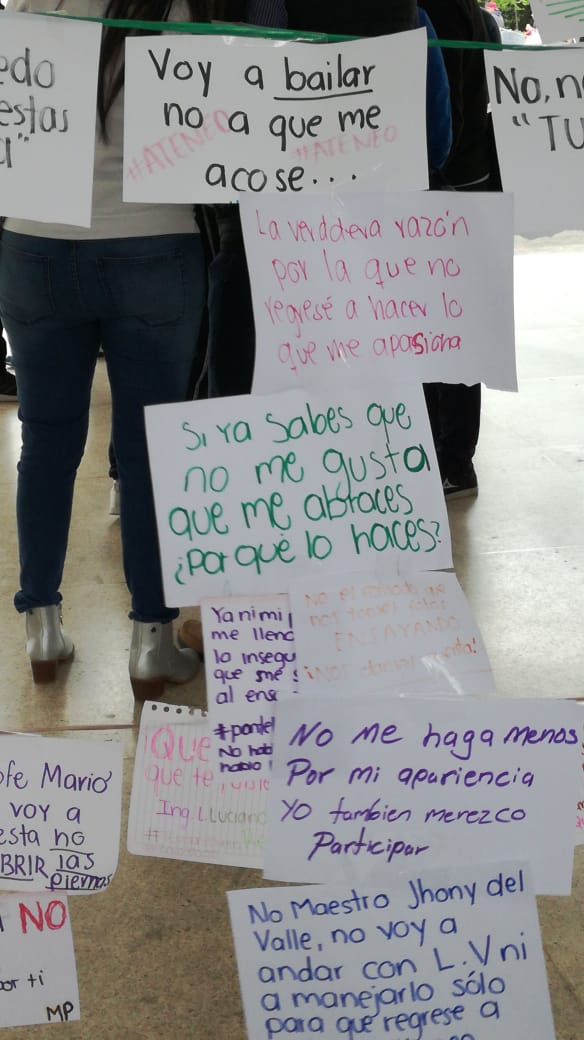 edo
estas
Voy a bailar
no a que me
acose...
#ATENEO
#ATENEO
No, n
"TU
La verddieva razón
por la que no
regresé a hacer lo
que me apasiona
Si ya sabes que
no me gusta
que me abraces
¿Por qué lo haces?
Ya ni mi
me llend
la insegu
que me s
al ens
No hab
hablo
ENSAYANDO
¡Que
que te
Ing. LLuciano
No me haga menos
Por mi apariencia
Yo tambien merezco
Participar
ofe Mario
voy a
esta no
BRIR las
piernas
NO
por ti
MP
No Maestro Jhony del
Valle, no voy a
andar con L.V ni
a manejarlo sólo
para que regrese a